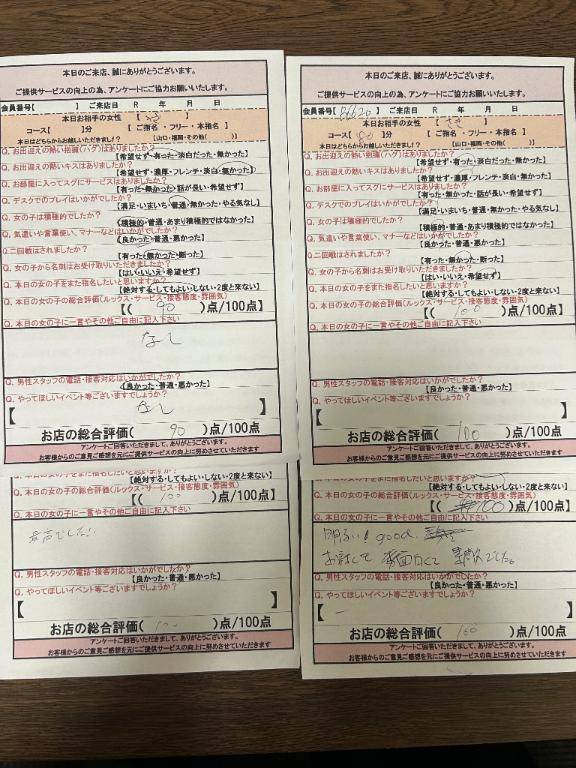 本日のご来店、誠にありがとうございます。
ご提供サービスの向上の為、アンケートにご協力お願いいたします。
会員番号【 】 ご来店日 R 年 月 日
本日お相手の女性 【 】
コース【 】分 【ご指名・フリー・本指名】
本日はどちらからお越しいただきました!? 【山口・福岡・その他( )】
Q. お出迎えの熱い抱擁(ハグ)はありましたか?
【希望せず・有った・淡白だった・無かった】
Q. お出迎えの熱いキスはありましたか?
【希望せず・濃厚・フレンチ・淡白・無かった】
Q. お部屋に入ってスグにサービスはありましたか?
【有った・無かった・話が長い・希望せず】
Q. デスクでのプレイはいかがでしたか?
【満足・いまいち・普通・無かった・やる気なし】
Q. 女の子は積極的でしたか?
【積極的・普通・あまり積極的ではなかった】
Q. 気遣いや言葉使い、マナーなどはいかがでしたか?
【良かった・普通・悪かった】
Q. 二回戦はされましたか?
【有った・無かった・断った】
Q. 女の子から名刺はお受け取りいただきましたか?
【はい・いいえ・希望せず】
Q. 本日の女の子をまた指名したいと思いますか?
【絶対する・してもよい・しない・2度と来ない】
Q. 本日の女の子の総合評価(ルックス・サービス・接客態度・雰囲気)
【( 90 )点/100点】
Q. 本日の女の子に一言やその他ご自由に記入下さい
なし
Q. 男性スタッフの電話・接客対応はいかがでしたか?
【良かった・普通・悪かった】
Q. やってほしいイベント等ございますでしょうか?
【 なし 】
お店の総合評価( 90 )点/100点
アンケートご回答いただきまして、ありがとうございます。
お客様からのご意見ご感想を元にご提供サービスの向上に努めさせていただきます
本日のご来店、誠にありがとうございます。
ご提供サービスの向上の為、アンケートにご協力お願いいたします。
会員番号【86620】 ご来店日 R 年 月 日
本日お相手の女性 【 】
コース【 80 】分 【ご指名・フリー・本指名】
本日はどちらからお越しいただきました!? 【山口・福岡・その他( )】
Q. お出迎えの熱い抱擁(ハグ)はありましたか?
【希望せず・有った・淡白だった・無かった】
Q. お出迎えの熱いキスはありましたか?
【希望せず・濃厚・フレンチ・淡白・無かった】
Q. お部屋に入ってスグにサービスはありましたか?
【有った・無かった・話が長い・希望せず】
Q. デスクでのプレイはいかがでしたか?
【満足・いまいち・普通・無かった・やる気なし】
Q. 女の子は積極的でしたか?
【積極的・普通・あまり積極的ではなかった】
Q. 気遣いや言葉使い、マナーなどはいかがでしたか?
【良かった・普通・悪かった】
Q. 二回戦はされましたか?
【有った・無かった・断った】
Q. 女の子から名刺はお受け取りいただきましたか?
【はい・いいえ・希望せず】
Q. 本日の女の子をまた指名したいと思いますか?
【絶対する・してもよい・しない・2度と来ない】
Q. 本日の女の子の総合評価(ルックス・サービス・接客態度・雰囲気)
【( 100 )点/100点】
Q. 本日の女の子に一言やその他ご自由に記入下さい
Q. 男性スタッフの電話・接客対応はいかがでしたか?
【良かった・普通・悪かった】
Q. やってほしいイベント等ございますでしょうか?
【 】
お店の総合評価( 100 )点/100点
アンケートご回答いただきまして、ありがとうございます。
お客様からのご意見ご感想を元にご提供サービスの向上に努めさせていただきます
Q. 本日の女の子をまた指名したいと思いますか?
【絶対する・してもよい・しない・2度と来ない】
Q. 本日の女の子の総合評価(ルックス・サービス・接客態度・雰囲気)
【( 100 )点/100点】
Q. 本日の女の子に一言やその他ご自由に記入下さい
でした!
Q. 男性スタッフの電話・接客対応はいかがでしたか?
【良かった・普通・悪かった】
Q. やってほしいイベント等ございますでしょうか?
【 】
お店の総合評価( 100 )点/100点
アンケートご回答いただきまして、ありがとうございます。
お客様からのご意見ご感想を元にご提供サービスの向上に努めさせていただきます
【絶対する・してもよい・しない・2度と来ない】
Q. 本日の女の子の総合評価(ルックス・サービス・接客態度・雰囲気)
【( 100 )点/100点】
Q. 本日の女の子に一言やその他ご自由に記入下さい
明るい! good.
お話して 面白くて でした。
Q. 男性スタッフの電話・接客対応はいかがでしたか?
【良かった・普通・悪かった】
Q. やってほしいイベント等ございますでしょうか?
【 — 】
お店の総合評価( 100 )点/100点
アンケートご回答いただきまして、ありがとうございます。
お客様からのご意見ご感想を元にご提供サービスの向上に努めさせていただきます